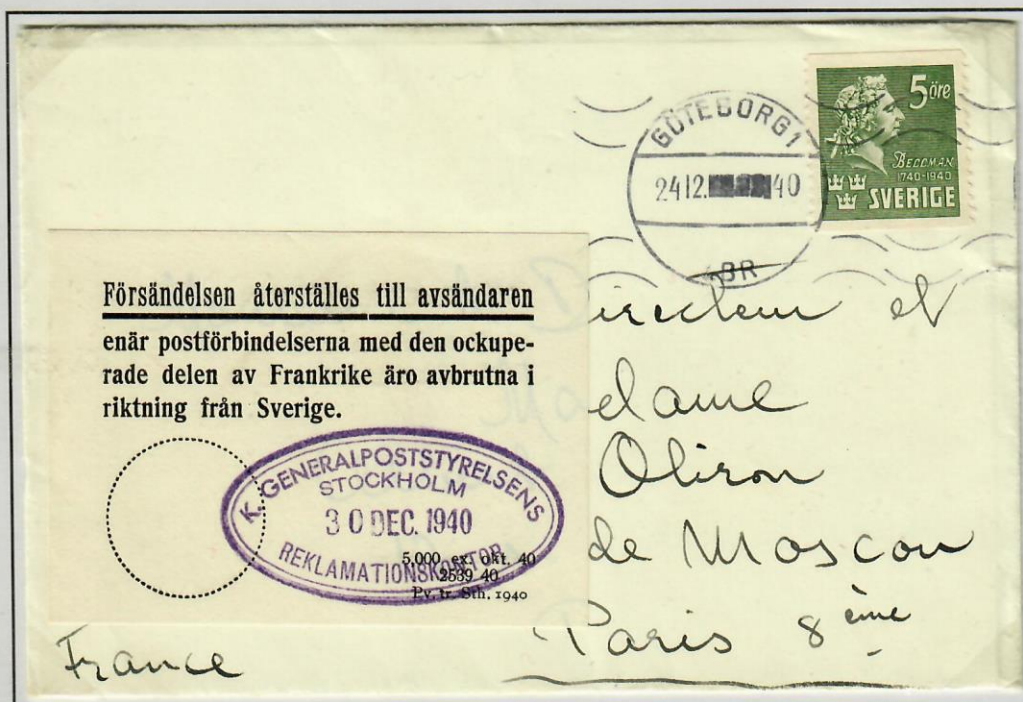 5 öre
BELLMAN
1740-1940
SVERIGE
GÖTEBORG 1
24 12. 40
BR
Försändelsen återställes till avsändaren
enär postförbindelserna med den ockupe-
rade delen av Frankrike äro avbrutna i
riktning från Sverige.
K. GENERALPOSTSTYRELSENS
STOCKHOLM
30 DEC. 1940
REKLAMATIONSKONTOR
5.000 ex. okt. 40
2539 40
Pv. tr. Sth. 1940
irecteur et
dame
Oliron
de Moscou
Paris 8 ème
France